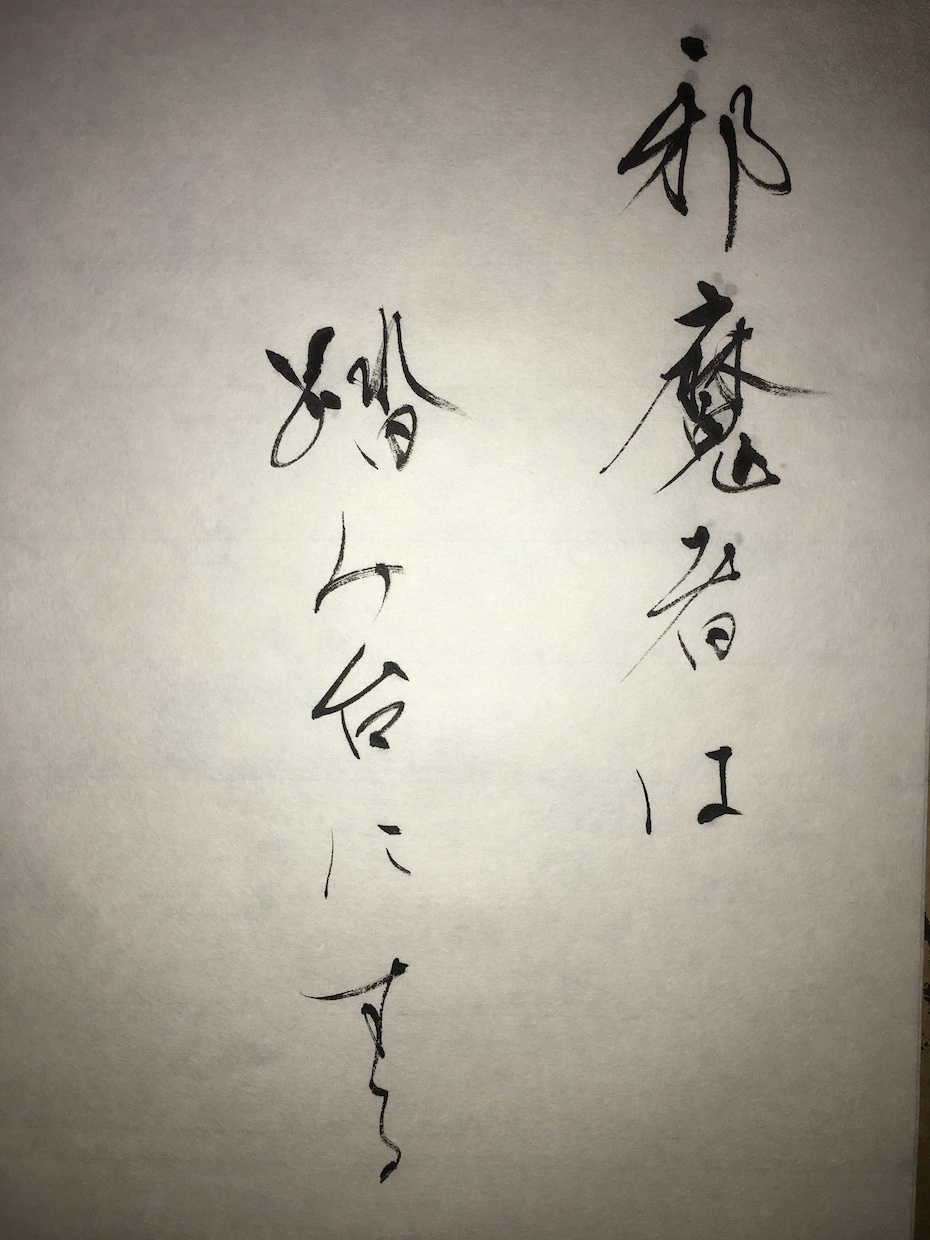 邪魔者は
踏み台にする